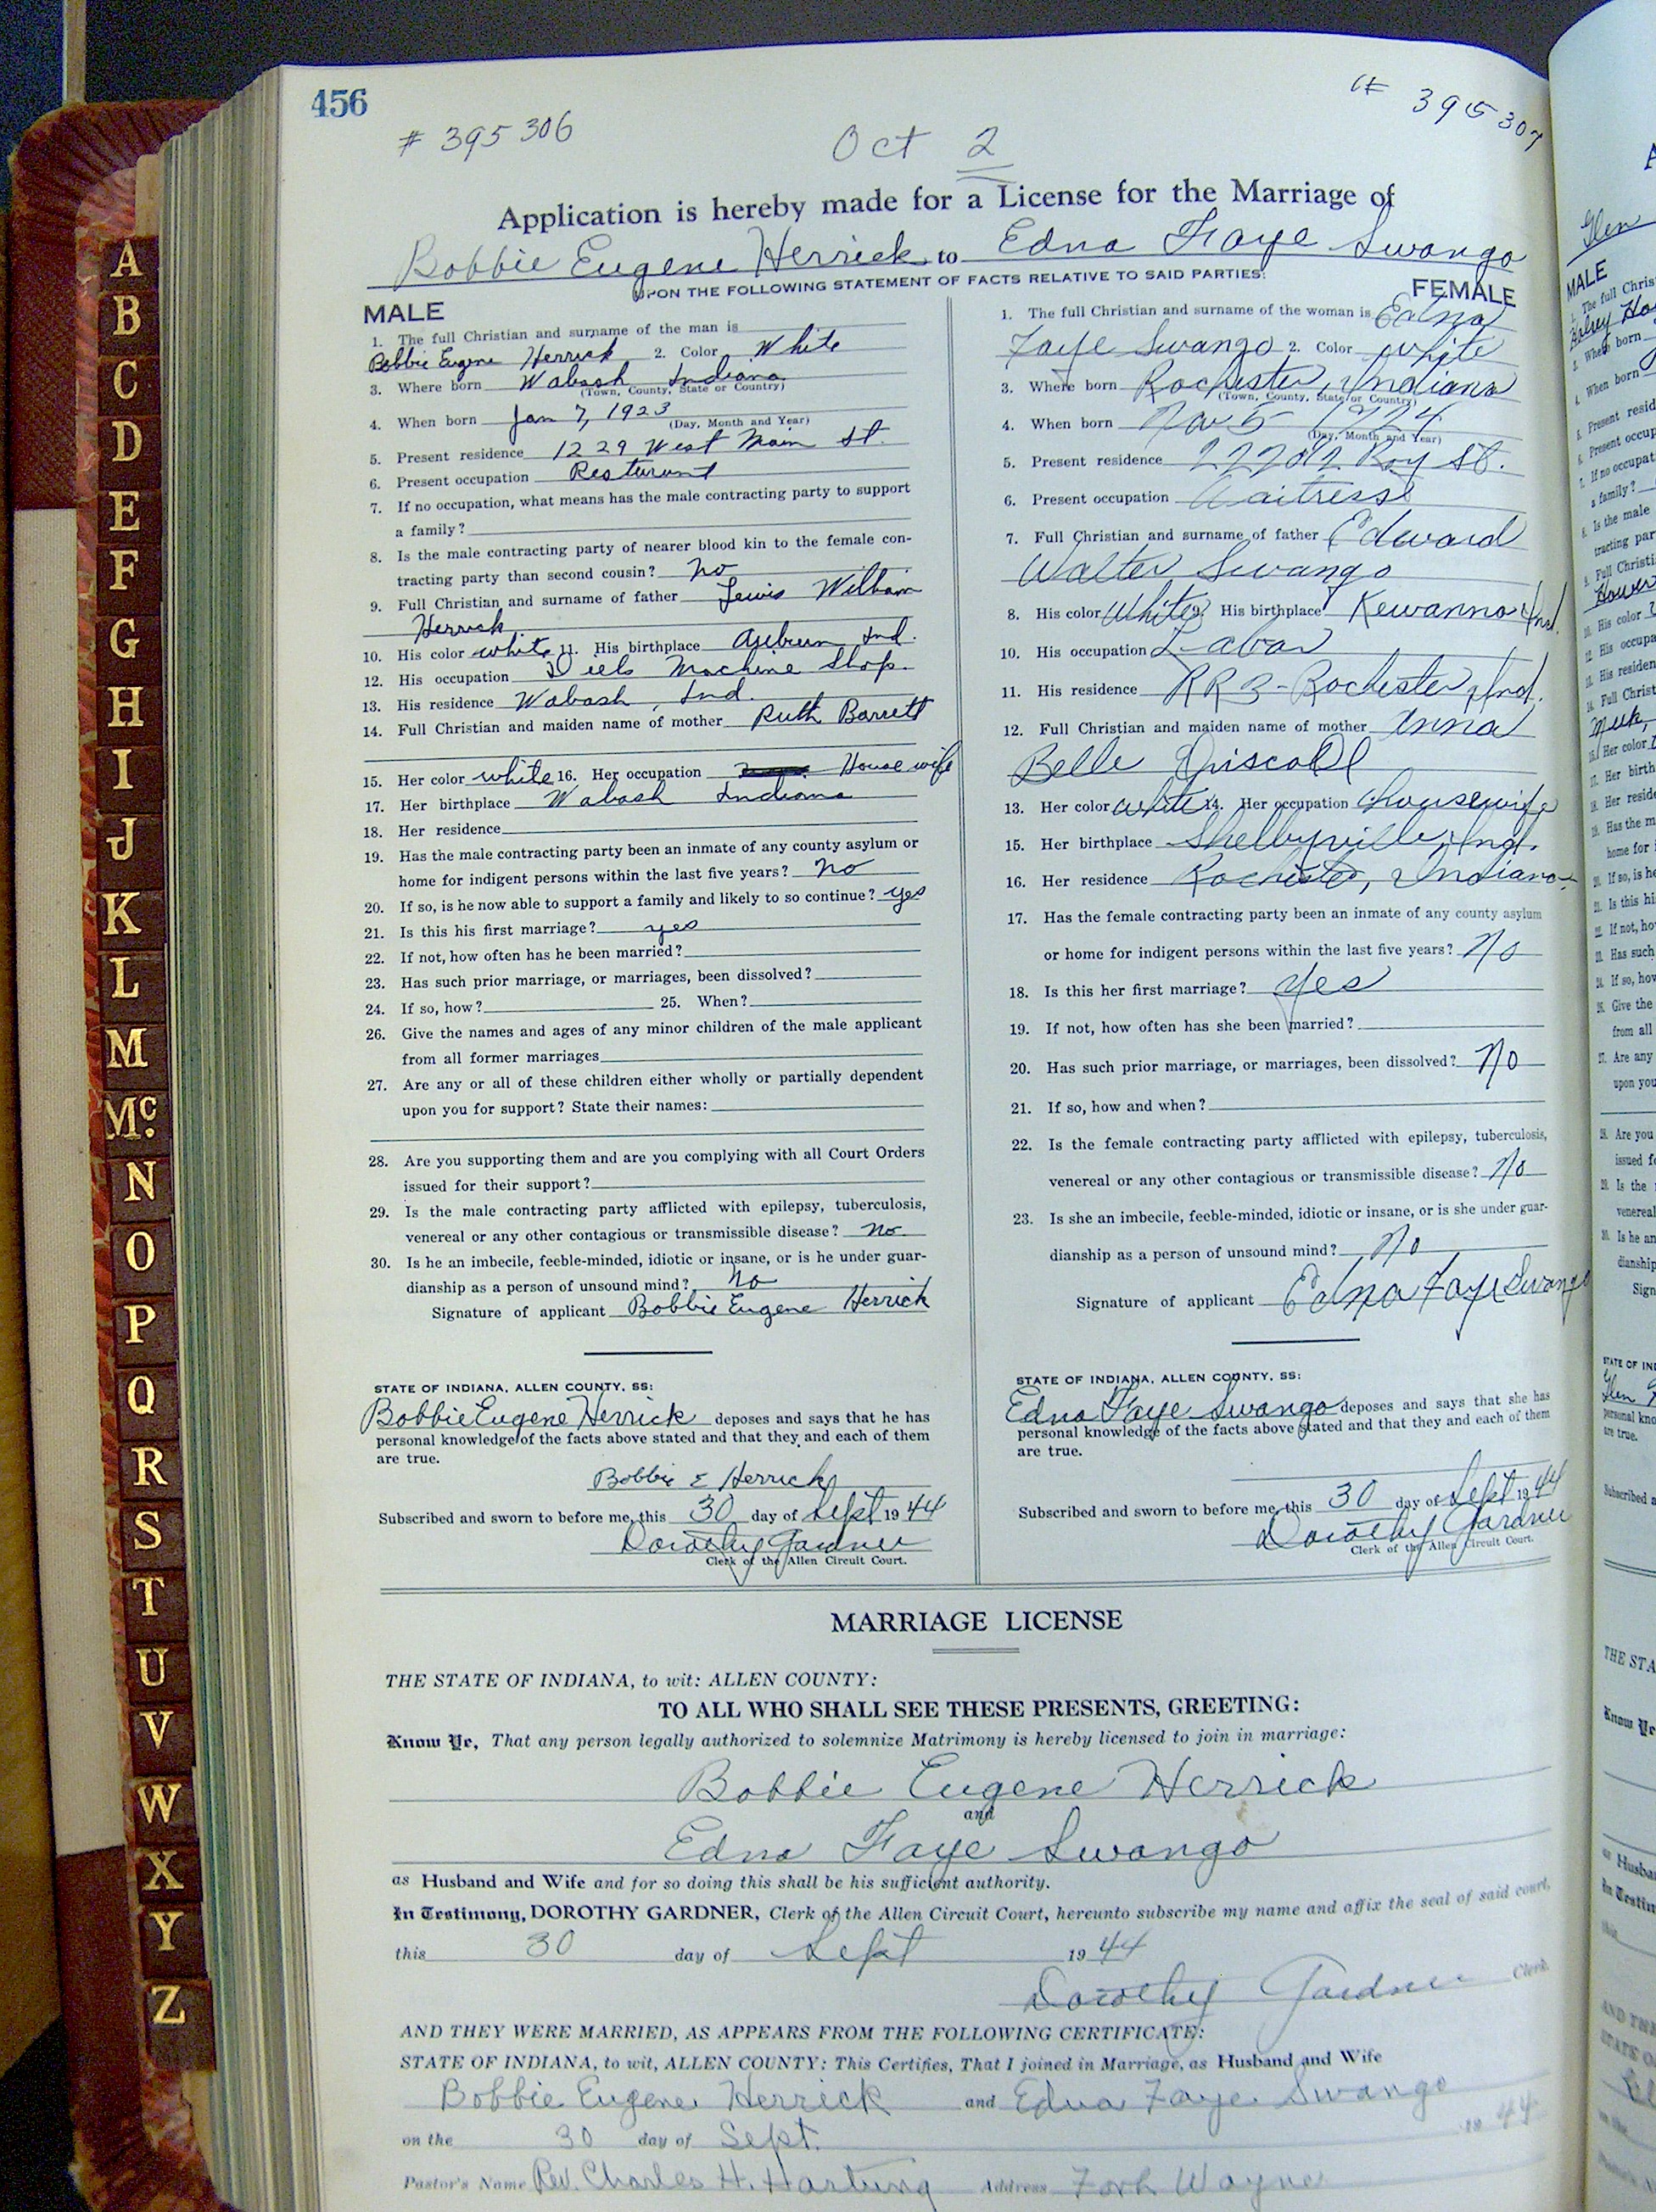 456
# 395306
# 395307
Oct 2
Application is hereby made for a License for the Marriage of
Bobbie Eugene Herrick to Edna Faye Swango
UPON THE FOLLOWING STATEMENT OF FACTS RELATIVE TO SAID PARTIES:
MALE
1. The full Christian and surname of the man is
Bobbie Eugene Herrick 2. Color White
3. Where born Wabash Indiana
(Town, County, State or Country)
4. When born Jan 7, 1923
(Day, Month and Year)
5. Present residence 1229 West Main St.
6. Present occupation Resturant
7. If no occupation, what means has the male contracting party to support
a family?
8. Is the male contracting party of nearer blood kin to the female con-
tracting party than second cousin? no
9. Full Christian and surname of father Lewis William
Herrick
10. His color white 11. His birthplace Auburn Ind.
12. His occupation Diels Machine Shop.
13. His residence Wabash, Ind.
14. Full Christian and maiden name of mother Ruth Barrett
15. Her color white 16. Her occupation House wife
17. Her birthplace Wabash Indiana
18. Her residence
19. Has the male contracting party been an inmate of any county asylum or
home for indigent persons within the last five years? no
20. If so, is he now able to support a family and likely to so continue? yes
21. Is this his first marriage? yes
22. If not, how often has he been married?
23. Has such prior marriage, or marriages, been dissolved?
24. If so, how? 25. When?
26. Give the names and ages of any minor children of the male applicant
from all former marriages
27. Are any or all of these children either wholly or partially dependent
upon you for support? State their names:
28. Are you supporting them and are you complying with all Court Orders
issued for their support?
29. Is the male contracting party afflicted with epilepsy, tuberculosis,
venereal or any other contagious or transmissible disease? no.
30. Is he an imbecile, feeble-minded, idiotic or insane, or is he under guar-
dianship as a person of unsound mind? no
Signature of applicant Bobbie Eugene Herrick
STATE OF INDIANA, ALLEN COUNTY, SS:
Bobbie Eugene Herrick deposes and says that he has
personal knowledge of the facts above stated and that they and each of them
are true.
Bobbie E Herrick
Subscribed and sworn to before me, this 30 day of Sept 1944
Dorothy Gardner
Clerk of the Allen Circuit Court.
FEMALE
1. The full Christian and surname of the woman is Edna
Faye Swango 2. Color white
3. Where born Rochester, Indiana
(Town, County, State or Country)
4. When born Nov 5 1924
(Day, Month and Year)
5. Present residence Roy St.
6. Present occupation Waitress
7. Full Christian and surname of father Edward
Walter Swango
8. His color White 9. His birthplace Kewanna Ind.
10. His occupation Labor
11. His residence RR3-Rochester, Ind.
12. Full Christian and maiden name of mother Anna
Belle Driscoll
13. Her color white 14. Her occupation housewife
15. Her birthplace Shelbyville, Ind.
16. Her residence Rochester, Indiana.
17. Has the female contracting party been an inmate of any county asylum
or home for indigent persons within the last five years? No
18. Is this her first marriage? Yes
19. If not, how often has she been married?
20. Has such prior marriage, or marriages, been dissolved? No
21. If so, how and when?
22. Is the female contracting party afflicted with epilepsy, tuberculosis,
venereal or any other contagious or transmissible disease? No
23. Is she an imbecile, feeble-minded, idiotic or insane, or is she under guar-
dianship as a person of unsound mind? No
Signature of applicant Edna Faye Swango
STATE OF INDIANA, ALLEN COUNTY, SS:
Edna Faye Swango deposes and says that she has
personal knowledge of the facts above stated and that they and each of them
are true.
Subscribed and sworn to before me, this 30 day of Sept 1944
Dorothy Gardner
Clerk of the Allen Circuit Court.
MARRIAGE LICENSE
THE STATE OF INDIANA, to wit: ALLEN COUNTY:
TO ALL WHO SHALL SEE THESE PRESENTS, GREETING:
Know Ye, That any person legally authorized to solemnize Matrimony is hereby licensed to join in marriage:
Bobbie Eugene Herrick
and
Edna Faye Swango
as Husband and Wife and for so doing this shall be his sufficient authority.
In Testimony, DOROTHY GARDNER, Clerk of the Allen Circuit Court, hereunto subscribe my name and affix the seal of said court,
this 30 day of Sept 1944
Dorothy Gardner Clerk
AND THEY WERE MARRIED, AS APPEARS FROM THE FOLLOWING CERTIFICATE:
STATE OF INDIANA, to wit, ALLEN COUNTY: This Certifies, That I joined in Marriage, as Husband and Wife
Bobbie Eugene Herrick and Edna Faye Swango
on the 30 day of Sept. 1944
Pastor's Name Rev. Charles H. Hartung Address Fort Wayne
A
B
C
D
E
F
G
H
I
J
K
L
M
Mc.
N
O
P
Q
R
S
T
U
V
W
X
Y
Z